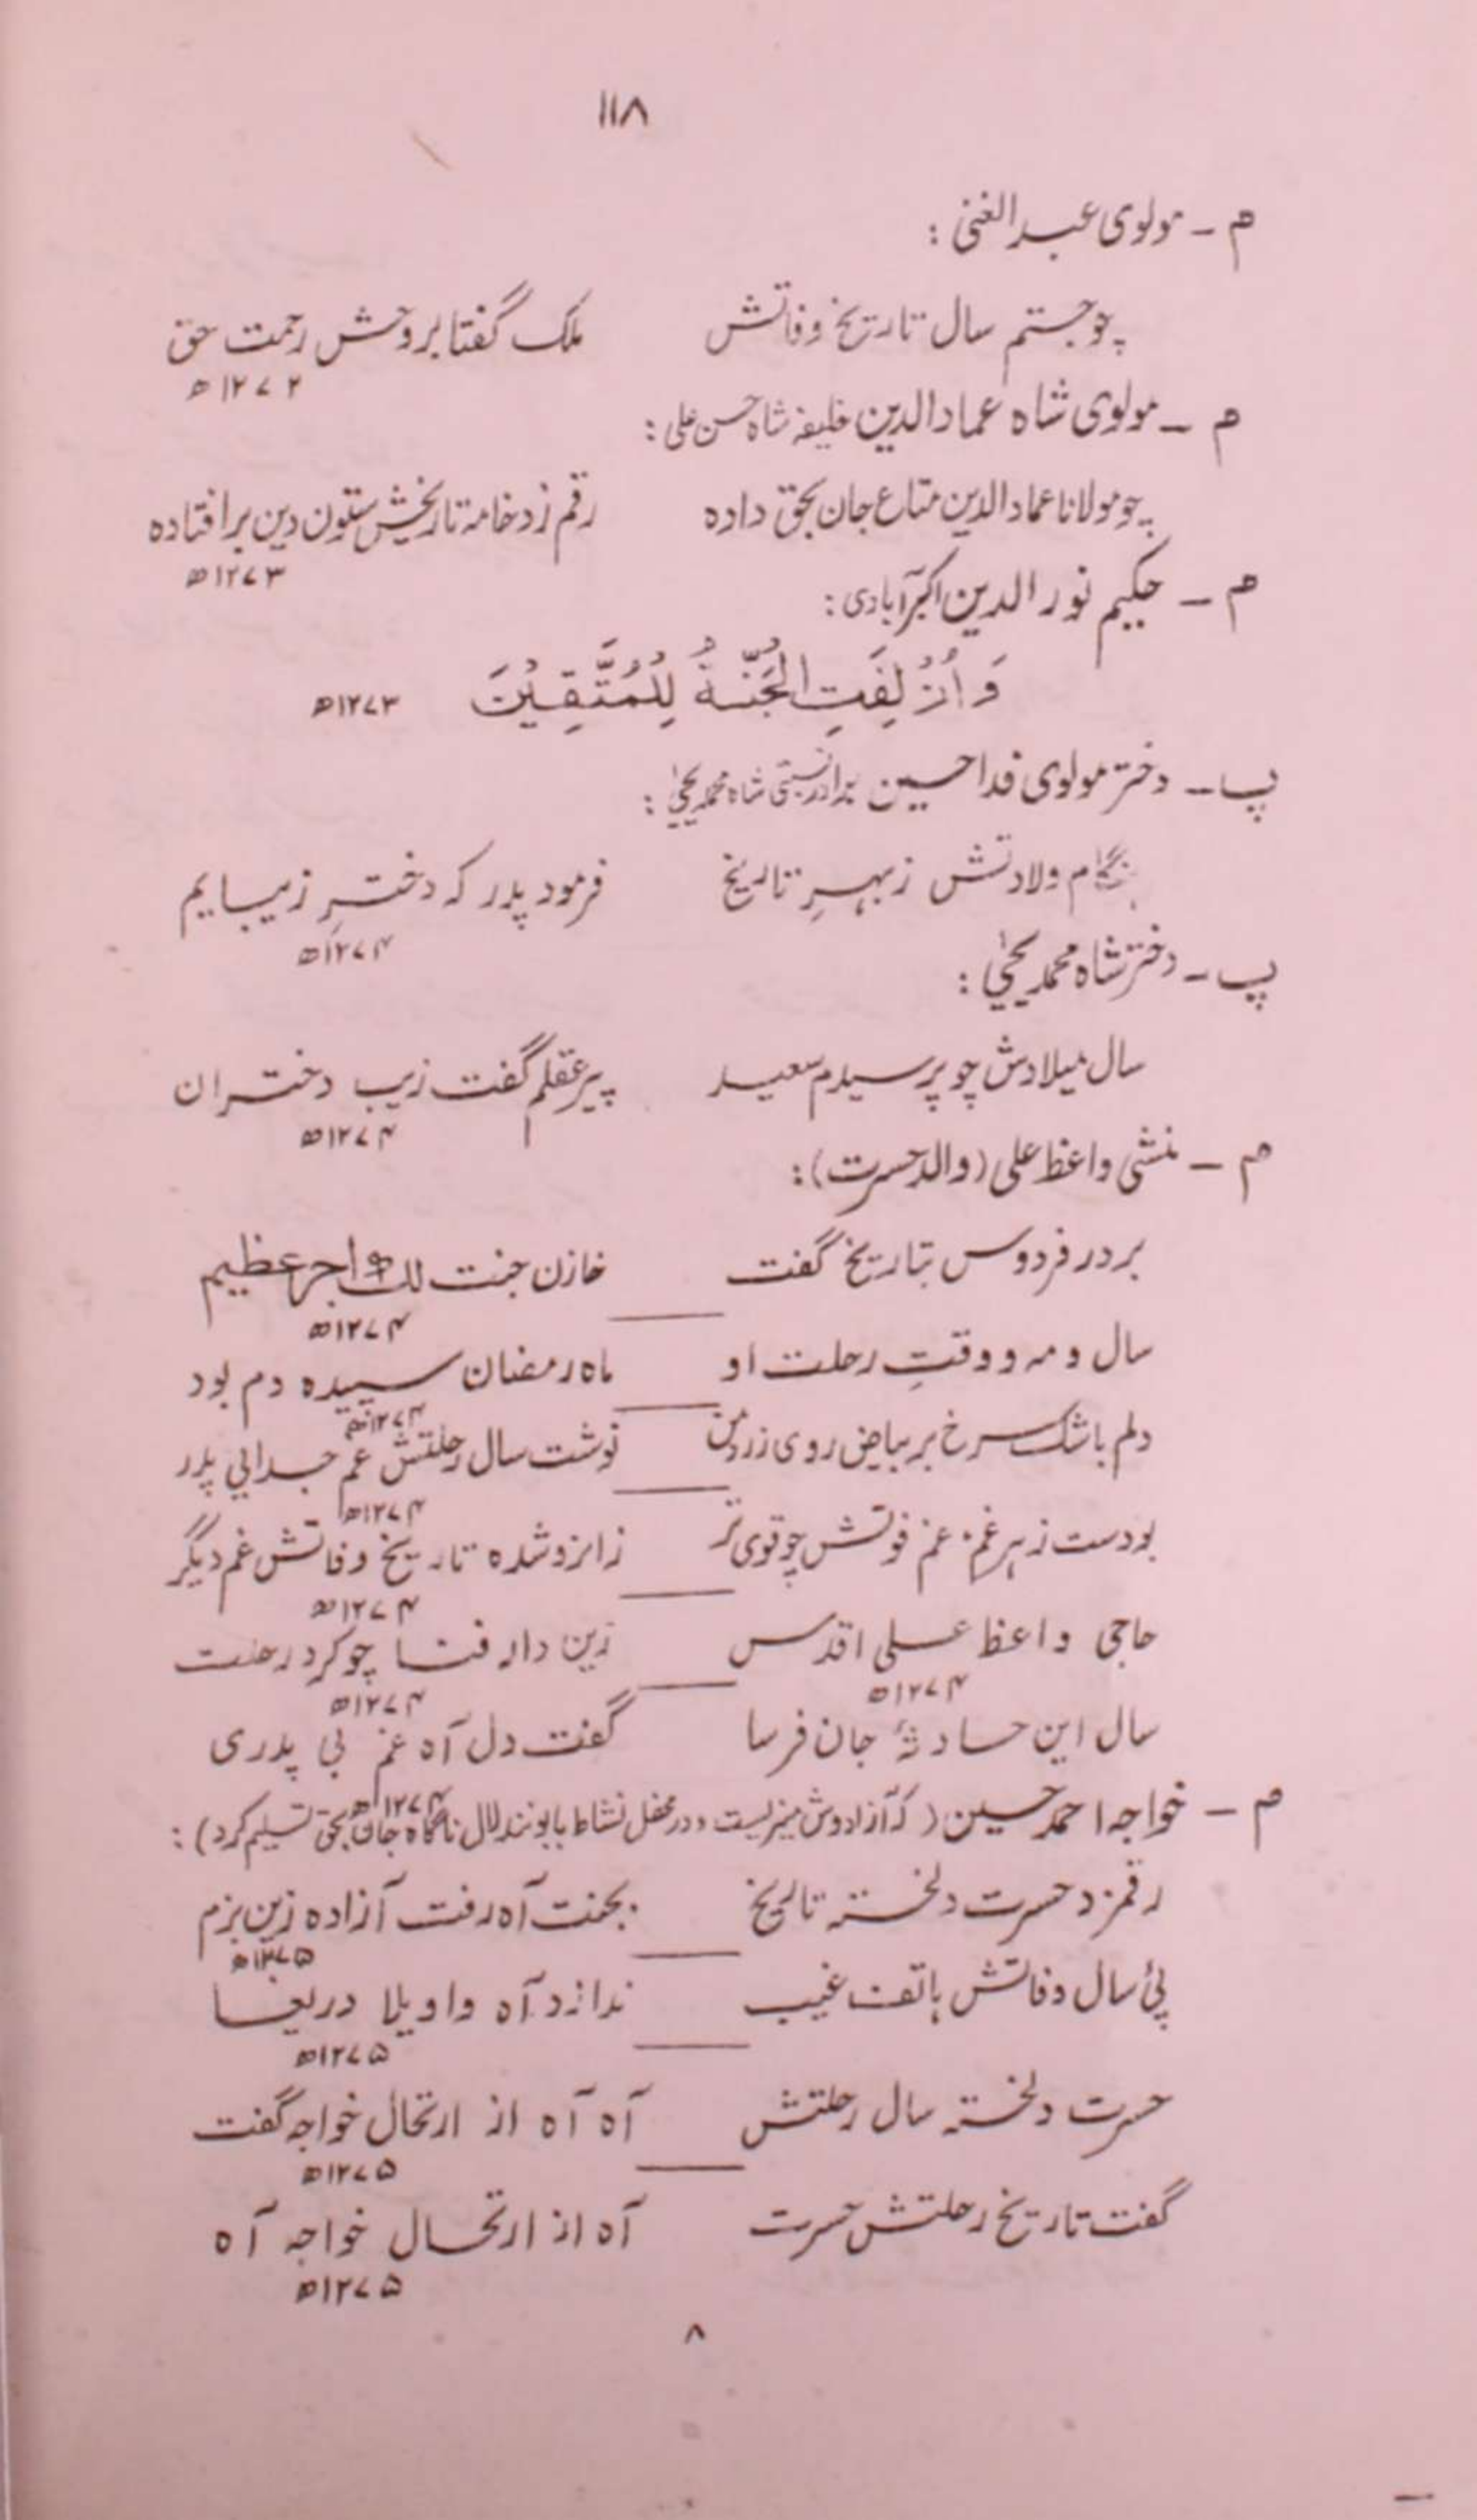 ۱۱۸
م - مولوی عبدالغنی :
چو جستم سال تاریخ وفاتش ملک گفتا بروحش رحمت حق
۱۲۷۲ھ
م - مولوی شاہ عمادالدین خلیفہ شاہ حسن علی :
چو مولانا عمادالدین متاع جان بحق داده رقم زد خامہ تاریخش ستون دین برافتاده
۱۲۷۳ھ
م - حکیم نورالدین اکبرآبادی :
وَ اُزْلِفَتِ الْجَنَّةُ لِلْمُتَّقِيْنَ ۱۲۷۳ھ
پ - دختر مولوی فدا حسین برادر نسبتی شاہ محمد یحییٰ :
ہنگام ولادتش ز بہرِ تاریخ فرمود پدر کہ دخترِ زیبایم
۱۲۷۴ھ
پ - دختر شاہ محمد یحییٰ :
سال میلادش چو پرسیدم سعید پیر عقلم گفت زیب دختران
۱۲۷۴ھ
م - منشی واعظ علی (والد حسرت) :
بر در فردوس بتاریخ گفت خازن جنت لك اجر عظیم
۱۲۷۴ھ
سال و مہ و وقتِ رحلت او ماہ رمضان سپیدہ دم بود
۱۲۷۴ھ
دلم باشک سرخ بر بیاض روی زرد من نوشت سال رحلتش غم جدایی پدر
۱۲۷۴ھ
بودست ز ہر غم غم فوتش چو قوی تر زانرو شدہ تاریخ وفاتش غم دیگر
۱۲۷۴ھ
حاجی واعظ علی اقدس زین دار فنا چو کرد رحلت
۱۲۷۴ھ ۱۲۷۴ھ
سال این حادثہٴ جان فرسا گفت دل آہ غم بی پدری
۱۲۷۴ھ
م - خواجہ احمد حسین (کہ آزادوش میزیست و در محفل نشاط بابو نندلال ناگاہ جان بحق تسلیم کرد) :
رقمزد حسرت دلخستہ تاریخ بجنت آہ رفت آزادہ زین بزم
۱۲۷۵ھ
پئ سال وفاتش ہاتف غیب ندا زد آہ واویلا دریغا
۱۲۷۵ھ
حسرت دلخستہ سال رحلتش آہ آہ از ارتحال خواجہ گفت
۱۲۷۵ھ
گفت تاریخ رحلتش حسرت آہ از ارتحال خواجہ آہ
۱۲۷۵ھ
۸